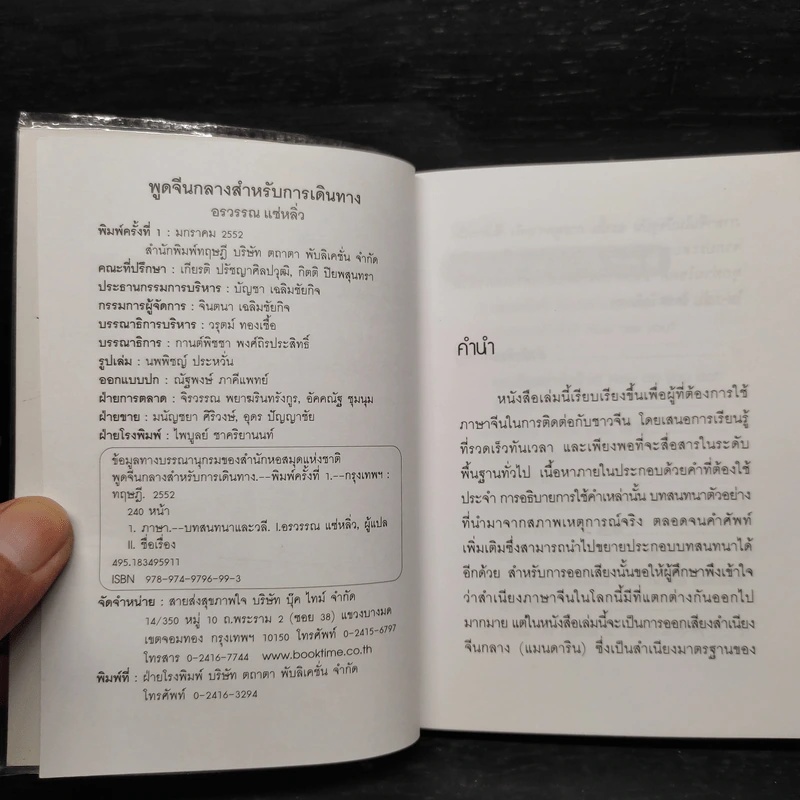 พูดจีนกลางสำหรับการเดินทาง
อรวรรณ แซ่หลิ่ว
พิมพ์ครั้งที่ 1 : มกราคม 2552
สำนักพิมพ์ทฤษฎี บริษัท ตถาตา พับลิเคชั่น จำกัด
คณะที่ปรึกษา : เกียรติ ปรัชญาศิลปวุฒิ, กิตติ ปิยพสุนทรา
ประธานกรรมการบริหาร : บัญชา เฉลิมชัยกิจ
กรรมการผู้จัดการ : จินตนา เฉลิมชัยกิจ
บรรณาธิการบริหาร : วรุตม์ ทองเชื้อ
บรรณาธิการ : กานต์พิชชา พงศ์ถิรประสิทธิ์
รูปเล่ม : นพพิชญ์ ประหวั่น
ออกแบบปก : ณัฐพงษ์ ภาคีแพทย์
ฝ่ายการตลาด : จิรวรรณ พยาฆรินทรังกูร, อัคคณัฐ ชุมนุม
ฝ่ายขาย : มนัญชยา ศิริวงษ์, อุดร ปัญญาชัย
ฝ่ายโรงพิมพ์ : ไพบูลย์ ชาคริยานนท์
ข้อมูลทางบรรณานุกรมของสำนักหอสมุดแห่งชาติ
พูดจีนกลางสำหรับการเดินทาง.--พิมพ์ครั้งที่ 1.--กรุงเทพฯ :
ทฤษฎี. 2552
240 หน้า
1. ภาษา.--บทสนทนาและวลี. I.อรวรรณ แซ่หลิ่ว, ผู้แปล
II. ชื่อเรื่อง
495.183495911
ISBN 978-974-9796-99-3
จัดจำหน่าย : สายส่งสุขภาพใจ บริษัท บุ๊ค ไทม์ จำกัด
14/350 หมู่ 10 ถ.พระราม 2 (ซอย 38) แขวงบางมด
เขตจอมทอง กรุงเทพฯ 10150 โทรศัพท์ 0-2415-6797
โทรสาร 0-2416-7744 www.booktime.co.th
พิมพ์ที่ : ฝ่ายโรงพิมพ์ บริษัท ตถาตา พับลิเคชั่น จำกัด
โทรศัพท์ 0-2416-3294
คำนำ
หนังสือเล่มนี้เรียบเรียงขึ้นเพื่อผู้ที่ต้องการใช้
ภาษาจีนในการติดต่อกับชาวจีน โดยเสนอการเรียนรู้
ที่รวดเร็วทันเวลา และเพียงพอที่จะสื่อสารในระดับ
พื้นฐานทั่วไป เนื้อหาภายในประกอบด้วยคำที่ต้องใช้
ประจำ การอธิบายการใช้คำเหล่านั้น บทสนทนาตัวอย่าง
ที่นำมาจากสภาพเหตุการณ์จริง ตลอดจนคำศัพท์
เพิ่มเติมซึ่งสามารถนำไปขยายประกอบบทสนทนาได้
อีกด้วย สำหรับการออกเสียงนั้นขอให้ผู้ศึกษาพึงเข้าใจ
ว่าสำเนียงภาษาจีนในโลกนี้มีที่แตกต่างกันออกไป
มากมาย แต่ในหนังสือเล่มนี้จะเป็นการออกเสียงสำเนียง
จีนกลาง (แมนดาริน) ซึ่งเป็นสำเนียงมาตรฐานของ